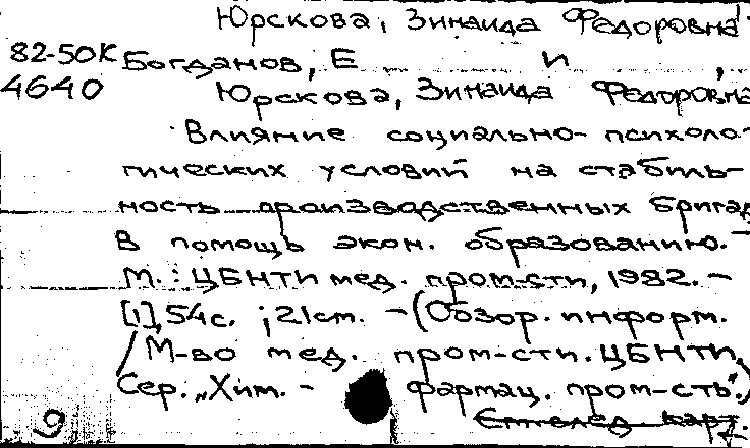 Юрскова, Зинаида Федоровна
82-50К Богданов, Е и ,
4640 Юрскова, Зинаида Федоровна
Влияние социально-психоло-
гических условий на стабиль-
ность производственных бригад
В помощь экон. образованию. -
М.: ЦБНТИ мед. пром-сти, 1982. -
[1], 54с. ; 21см. - (Обзор. информ.
/ М-во мед. пром-сти. ЦБНТИ,
Сер. „Хим. - фармац. пром-сть".)
9 карт.